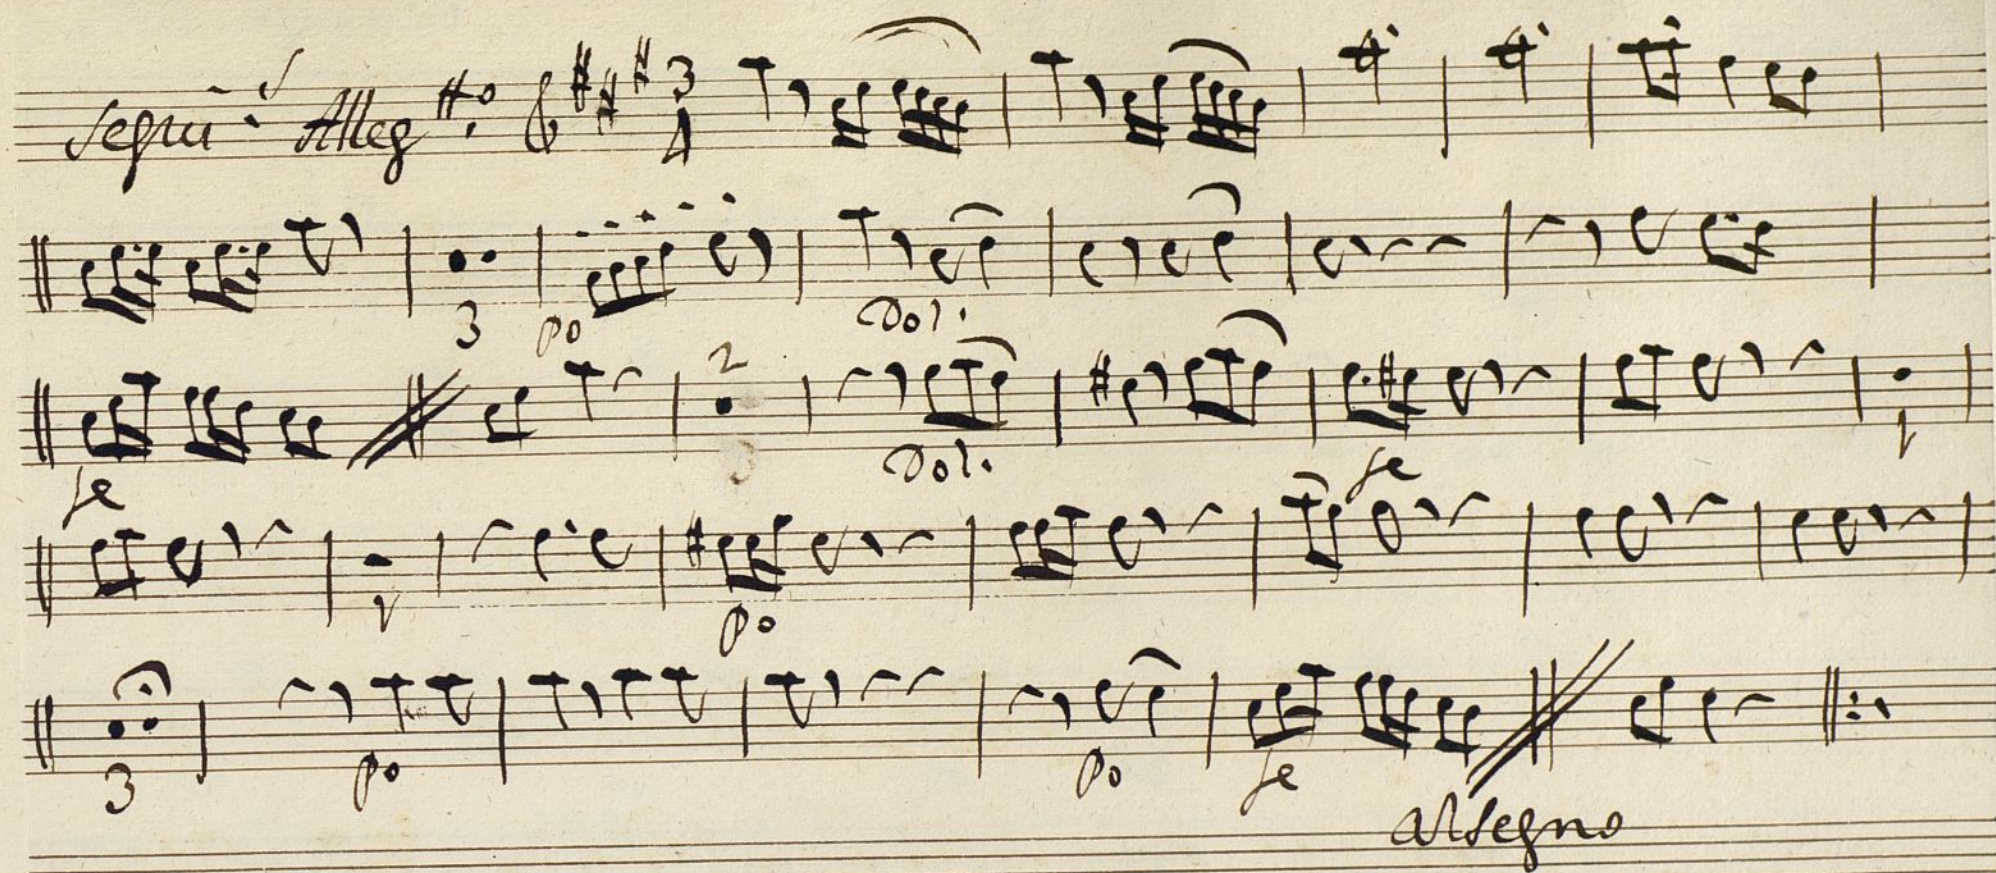 Segui Alleg.tto 3 4
3 po Dol.
2 Dol. fe
fe 1
1 po
3 po po fe
al Segno